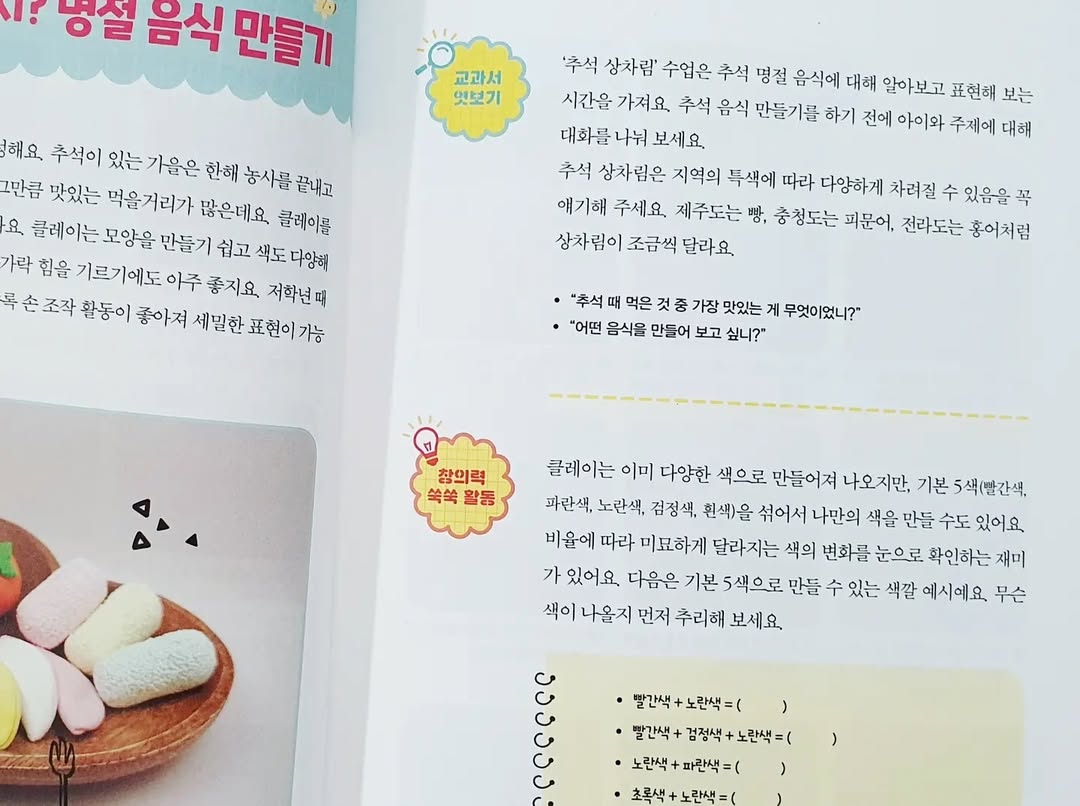 명절 음식 만들기
해요. 추석이 있는 가을은 한해 농사를 끝내고
그만큼 맛있는 먹을거리가 많은데요. 클레이를
요. 클레이는 모양을 만들기 쉽고 색도 다양해
가락 힘을 기르기에도 아주 좋지요. 저학년 때
록 손 조작 활동이 좋아져 세밀한 표현이 가능
교과서
엿보기
‘추석 상차림’ 수업은 추석 명절 음식에 대해 알아보고 표현해 보는
시간을 가져요. 추석 음식 만들기를 하기 전에 아이와 주제에 대해
대화를 나눠 보세요.
추석 상차림은 지역의 특색에 따라 다양하게 차려질 수 있음을 꼭
얘기해 주세요. 제주도는 빵, 충청도는 피문어, 전라도는 홍어처럼
상차림이 조금씩 달라요.
• “추석 때 먹은 것 중 가장 맛있는 게 무엇이었니?”
• “어떤 음식을 만들어 보고 싶니?”
창의력
쑥쑥 활동
클레이는 이미 다양한 색으로 만들어져 나오지만, 기본 5색(빨간색,
파란색, 노란색, 검정색, 흰색)을 섞어서 나만의 색을 만들 수도 있어요.
비율에 따라 미묘하게 달라지는 색의 변화를 눈으로 확인하는 재미
가 있어요. 다음은 기본 5색으로 만들 수 있는 색깔 예시예요. 무슨
색이 나올지 먼저 추리해 보세요.
• 빨간색 + 노란색 = ( )
• 빨간색 + 검정색 + 노란색 = ( )
• 노란색 + 파란색 = ( )
• 초록색 + 노란색 = ( )